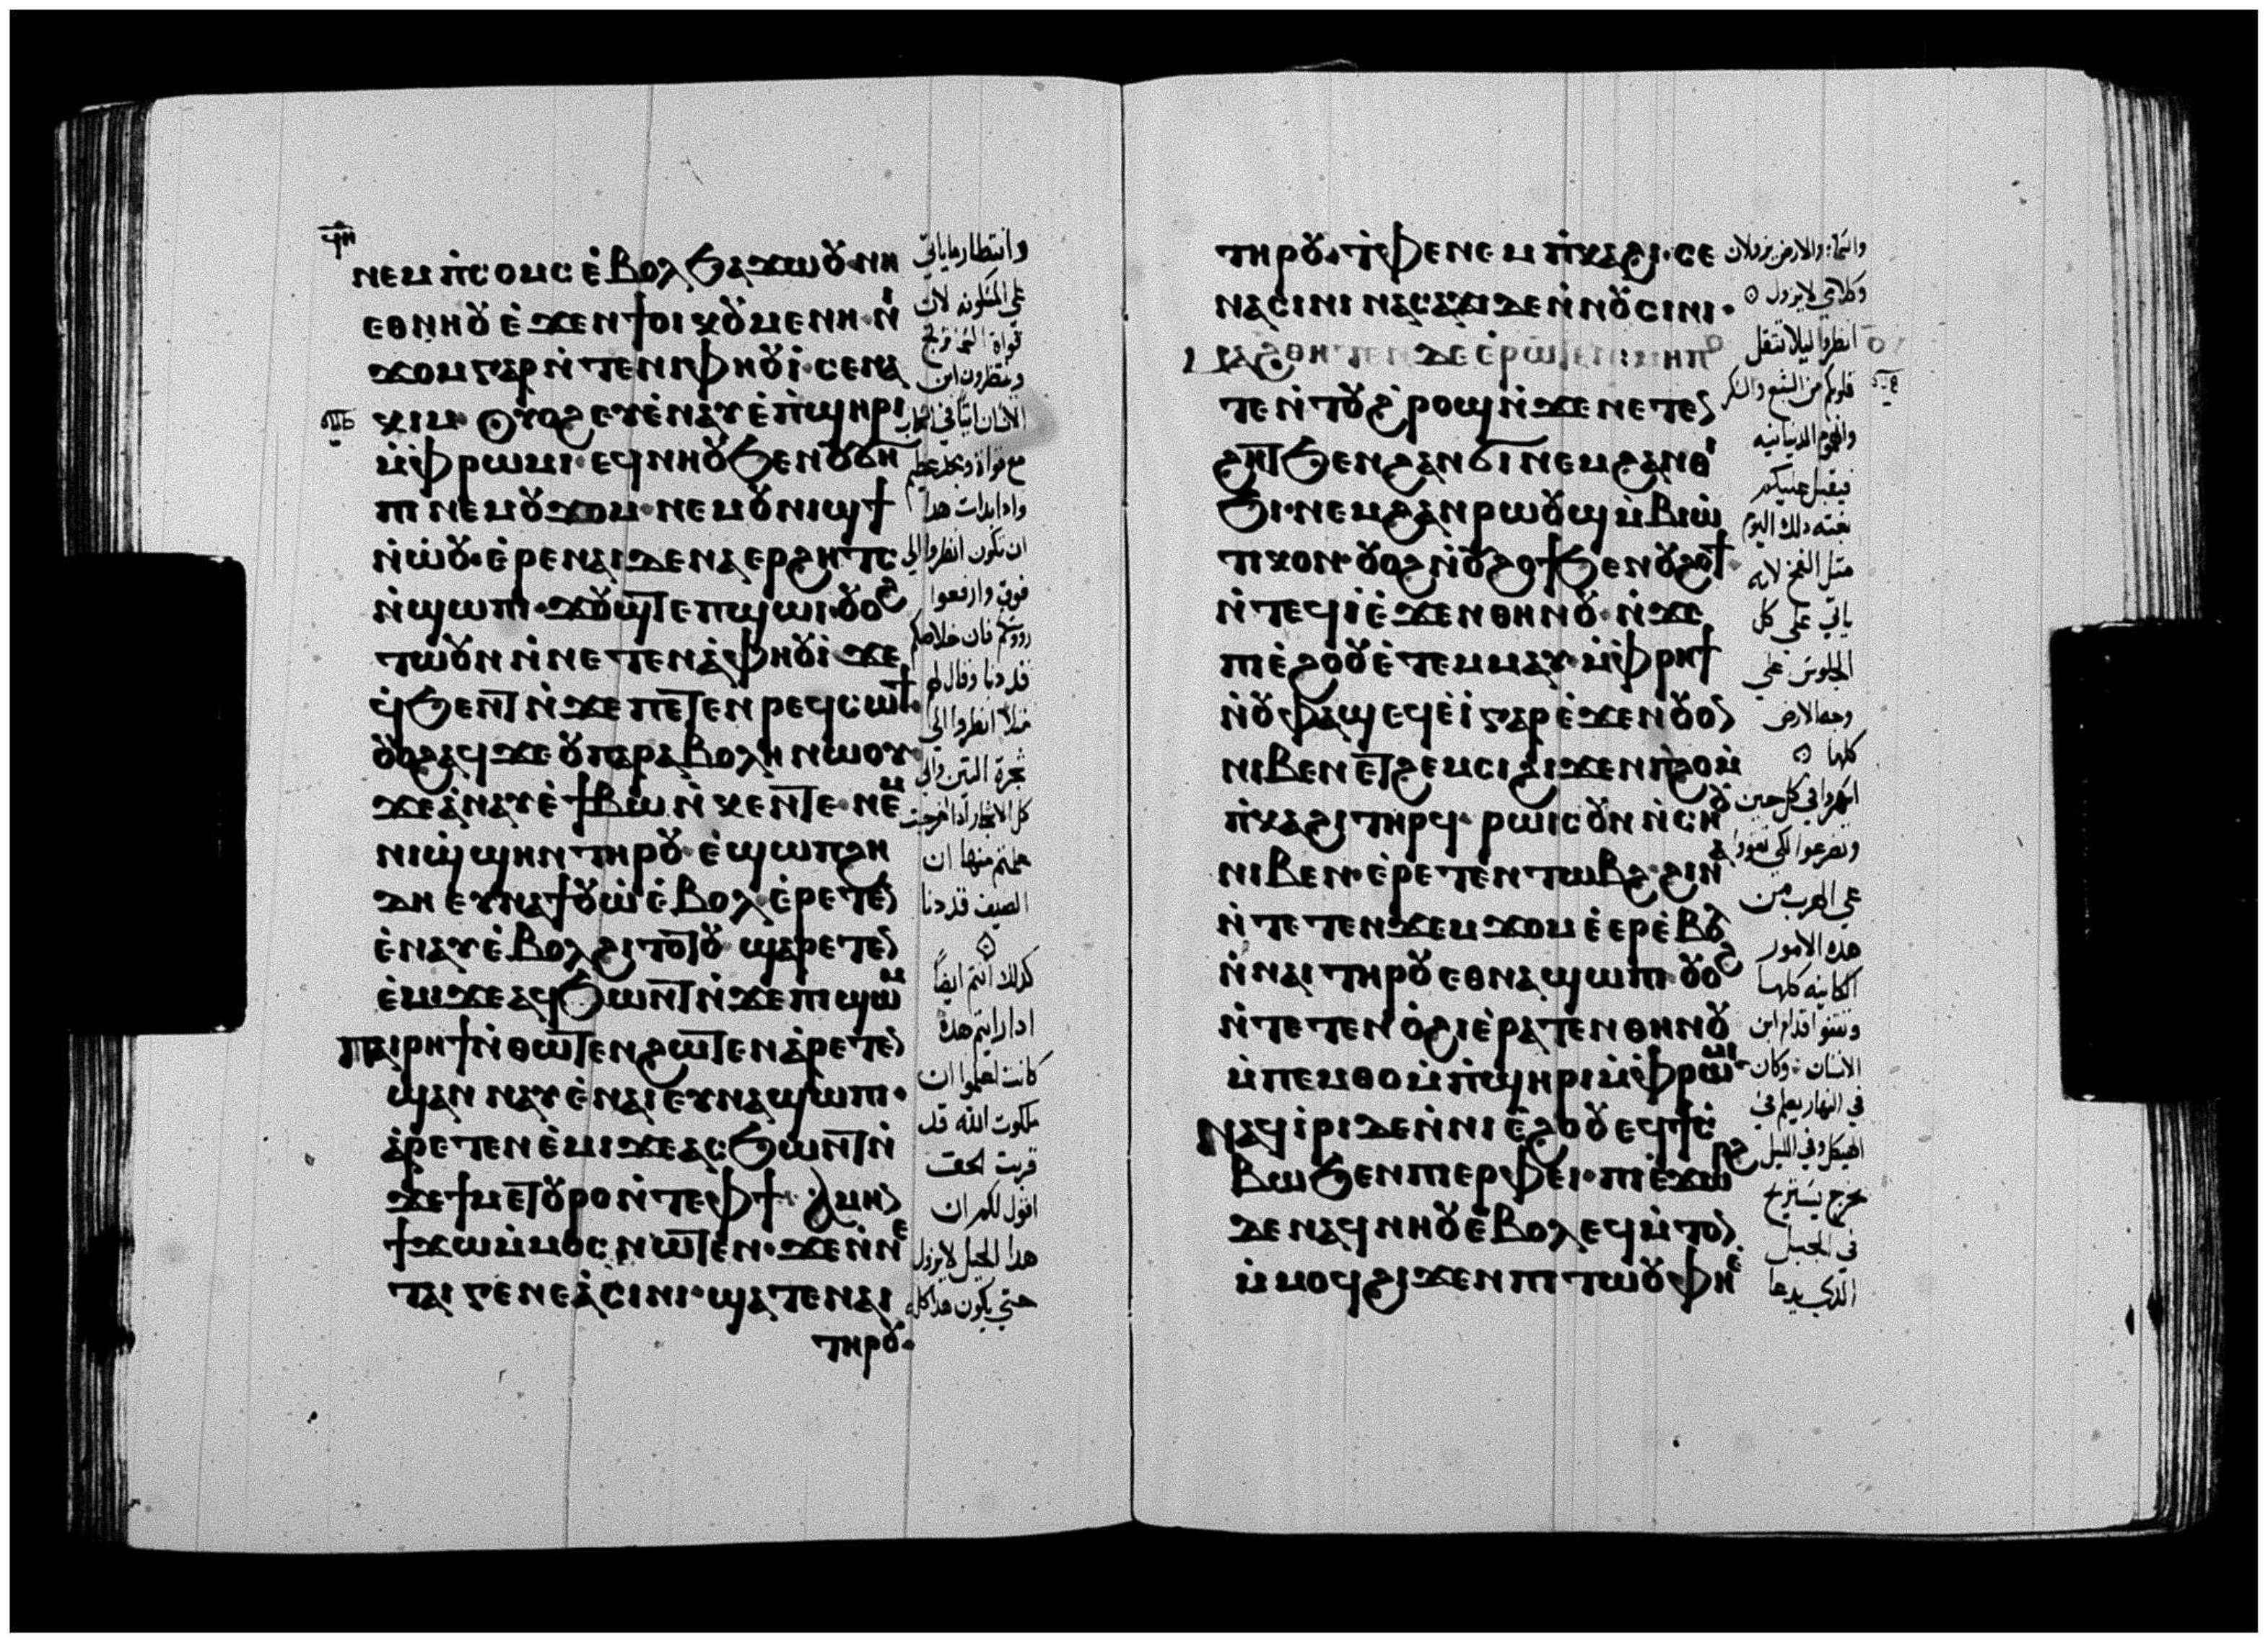 ϥⲏ
ⲛⲉⲙ ⲡ̇ⲥⲟⲙⲥ ⲉ̇ⲃⲟⲗ ϧⲁϫⲱⲟⲩ ⲛⲏ
ⲉⲑⲛⲏⲟⲩ ⲉ̇ϫⲉⲛ ϯⲟⲓⲕⲟⲩⲙⲉⲛⲏ· ⲛⲓ
ϫⲟⲙ ⲅⲁⲣ ⲛ̇ⲧⲉ ⲛⲓⲫⲏⲟⲩⲓ̇· ⲥⲉⲛⲁ
ⲕⲓⲙ· ⲟⲩⲟϩ ⲉⲩⲉ̇ⲛⲁⲩ ⲉ̇ⲡ̇ϣⲏⲣⲓ
ⲙ̇ⲫⲣⲱⲙⲓ· ⲉϥⲛⲏⲟⲩ ϧⲉⲛ ⲟⲩϭⲏ
ⲡⲓ ⲛⲉⲙ ⲟⲩϫⲟⲙ· ⲛⲉⲙ ⲟⲩⲛⲓϣϯ
ⲛ̇ⲱ̇ⲟⲩ· ⲉ̇ⲣⲉ ⲛⲁⲓ ⲇⲉ ⲛⲁⲉⲣϩⲏⲧⲥ
ⲛ̇ϣⲱⲡⲓ· ϫⲟⲩϣⲧ ⲉⲡϣⲱⲓ· ⲟⲩⲟϩ
ⲧⲱⲟⲩⲛ ⲛ̇ⲛⲉⲧⲉⲛⲁ̇ⲫⲏⲟⲩⲓ̇ ϫⲉ
ϥ̇ϧⲉⲛⲧ ⲛ̇ϫⲉ ⲡⲉⲧⲉⲛⲣⲉϥⲥⲱϯ·
ⲟⲩⲟϩ ⲁϥϫⲉ ⲟⲩⲡⲁⲣⲁⲃⲟⲗⲏ ⲛⲱⲟⲩ
ϫⲉ ⲁ̇ⲛⲁⲩ ⲉ̇ϯⲃⲱ ⲛ̇ⲕⲉⲛⲧⲉ· ⲛⲉⲙ
ⲛⲓϣ̇ϣⲏⲛ ⲧⲏⲣⲟⲩ· ⲉ̇ϣⲱⲡ ϩⲏ
ⲇⲏ ⲉⲩⲛⲁϯⲟⲩⲱ̇ ⲉ̇ⲃⲟⲗ· ⲉ̇ⲣⲉⲧⲉⲛ
ⲉ̇ⲛⲁⲩ ⲉ̇ⲃⲟⲗ ϩⲓⲧⲟⲧⲟⲩ ϣⲁⲣⲉⲧⲉⲛ
ⲉ̇ⲙⲓ ϫⲉ ⲁϥϧⲱⲛⲧ ⲛ̇ϫⲉ ⲡⲓϣⲱⲙ
ⲡⲁⲓⲣⲏϯ ⲛ̇ⲑⲱⲧⲉⲛ ϩⲱⲧⲉⲛ ⲁ̇ⲣⲉⲧⲉⲛ
ϣⲁⲛ ⲛⲁⲩ ⲉ̇ⲛⲁⲓ ⲉⲩⲛⲁϣⲱⲡⲓ·
ⲁ̇ⲣⲉⲧⲉⲛ ⲉ̇ⲙⲓ ϫⲉ ⲁⲥϧⲱⲛⲧ ⲛ̇
ϫⲉ ϯⲙⲉⲧⲟⲩⲣⲟ ⲛ̇ⲧⲉ ⲫϯ· ⲁⲙⲏⲛ
ϯϫⲱ ⲙ̇ⲙⲟⲥ ⲛⲱⲧⲉⲛ· ϫⲉ ⲛ̇ⲛⲉ
ⲧⲁⲓⲅⲉⲛⲉⲁ̇ ⲥⲓⲛⲓ· ϣⲁⲧⲉ ⲛⲁⲓ
ⲧⲏⲣⲟⲩ·
وانتظار ما ياتي
على المسكونه لان
قواة السما ترتج
وينظرون ابن
الانسان اتيًا في السحاب
مع قواة ومجد عظيم
وادا بدات هدا
ان تكون انظروا الى
فوق وارفعوا
رووسكم فان خلاصكم
قد دنا وقال لهم
مثلاً انظروا الى
شجرة التين والى
كل الاشجار ادا اخرجت
علمتم منها ان
الصيف قد دنا
كدلك انتم ايضاً
ادا رايتم هده
كانت اعلموا ان
ملكوت الله قد
قربت الحق
اقول لكم ان
هدا الجيل لا يزول
حتى يكون هدا كله
ⲧⲏⲣⲟⲩ· ⲧ̇ⲫⲉ ⲛⲉⲙ ⲡ̇ⲕⲁϩⲓ· ⲥⲉ
ⲛⲁⲥⲓⲛⲓ ⲛⲁⲥⲁϫⲓ ⲇⲉ ⲛ̇ⲛⲟⲩⲥⲓⲛⲓ·
ⲙⲁϩⲑⲏⲧⲉⲛ ⲇⲉ ⲉ̇ⲣⲱⲧⲉⲛ: ⲙⲏⲡⲟ
ⲧⲉ ⲛ̇ⲧⲟⲩϩ̇ⲣⲟϣ ⲛ̇ϫⲉ ⲛⲉⲧⲉⲛ
ϩⲏⲧ ϧⲉⲛ ϩⲁⲛϭⲓ ⲛⲉⲙ ϩⲁⲛⲑⲓ
ϧⲓ· ⲛⲉⲙ ϩⲁⲛⲣⲱⲟⲩϣ ⲙ̇ⲃⲓⲱ
ⲧⲓⲕⲟⲛ· ⲟⲩⲟϩ ⲛ̇ⲟⲩϩⲟϯ ϧⲉⲛ ⲟⲩϩⲟϯ
ⲛ̇ⲧⲉϥⲓ̇ ⲉ̇ϫⲉⲛ ⲑⲏⲛⲟⲩ· ⲛ̇ϫⲉ
ⲡⲓⲉ̇ϩⲟⲟⲩ ⲉ̇ⲧⲉⲙⲙⲁⲩ· ⲙ̇ⲫⲣⲏϯ
ⲛ̇ⲟⲩⲫⲁϣ ⲉϥⲉ̇ⲓ̇ ⲅⲁⲣ ⲉ̇ϫⲉⲛ ⲟⲩⲟⲛ
ⲛⲓⲃⲉⲛ ⲉⲧϩⲉⲙⲥⲓ ϩⲓϫⲉⲛ ⲡ̇ϩⲟ ⲙ̇
ⲡ̇ⲕⲁϩⲓ ⲧⲏⲣϥ· ⲣⲱⲓⲥ ⲟⲩⲛ ⲛ̇ⲥⲏⲟⲩ
ⲛⲓⲃⲉⲛ· ⲉ̇ⲣⲉⲧⲉⲛⲧⲱⲃϩ· ϩⲓⲛⲁ
ⲛ̇ⲧⲉⲧⲉⲛϫⲉⲙϫⲟⲙ ⲉ̇ⲉⲣⲉ̇ⲃⲟⲗ
ⲛ̇ⲛⲁⲓ ⲧⲏⲣⲟⲩ ⲉⲑⲛⲁϣⲱⲡⲓ· ⲟⲩⲟϩ
ⲛ̇ⲧⲉⲧⲉⲛⲟ̇ϩⲓ ⲉ̇ⲣⲁⲧⲉⲛ ⲑⲏⲛⲟⲩ
ⲙ̇ⲡⲉⲙⲑⲟ ⲙ̇ⲡ̇ϣⲏⲣⲓ ⲙ̇ⲫⲣⲱⲙⲓ
ⲛⲁϥⲓ̇ⲣⲓ ⲇⲉ ⲛ̇ⲛⲓⲉ̇ϩⲟⲟⲩ ⲉϥϯⲥ̇
ⲃⲱ ϧⲉⲛ ⲡⲓⲉⲣⲫⲉⲓ· ⲡⲓⲉ̇ϫⲱⲣϩ
ⲇⲉ ⲛⲁϥⲛⲏⲟⲩ ⲉ̇ⲃⲟⲗ ⲉϥⲙ̇ⲧⲟⲛ
ⲙ̇ⲙⲟϥ ϩⲓϫⲉⲛ ⲡⲓⲧⲱⲟⲩ ⲫⲏⲉ
والسما والارض يزولان
وكلامي لا يزول
انظروا ليلا تثقل
قلوبكم من الشبع والسكر
والهموم الدنيانيه
فيقبل عليكم
بغته دلك اليوم
متل الفخ لانه
ياتي على كل
الجلوس على
وجه الارض
كلها
اسهروا في كل حين
وتضرعوا لكي تقووا
على الهرب من
هده الامور
الكاينه كلها
وتقفوا قدام ابن
الانسان وكان
في النهار يعلم في
الهيكل وفي الليل
يخرج يستريح
في الجبل
الدي يدعا